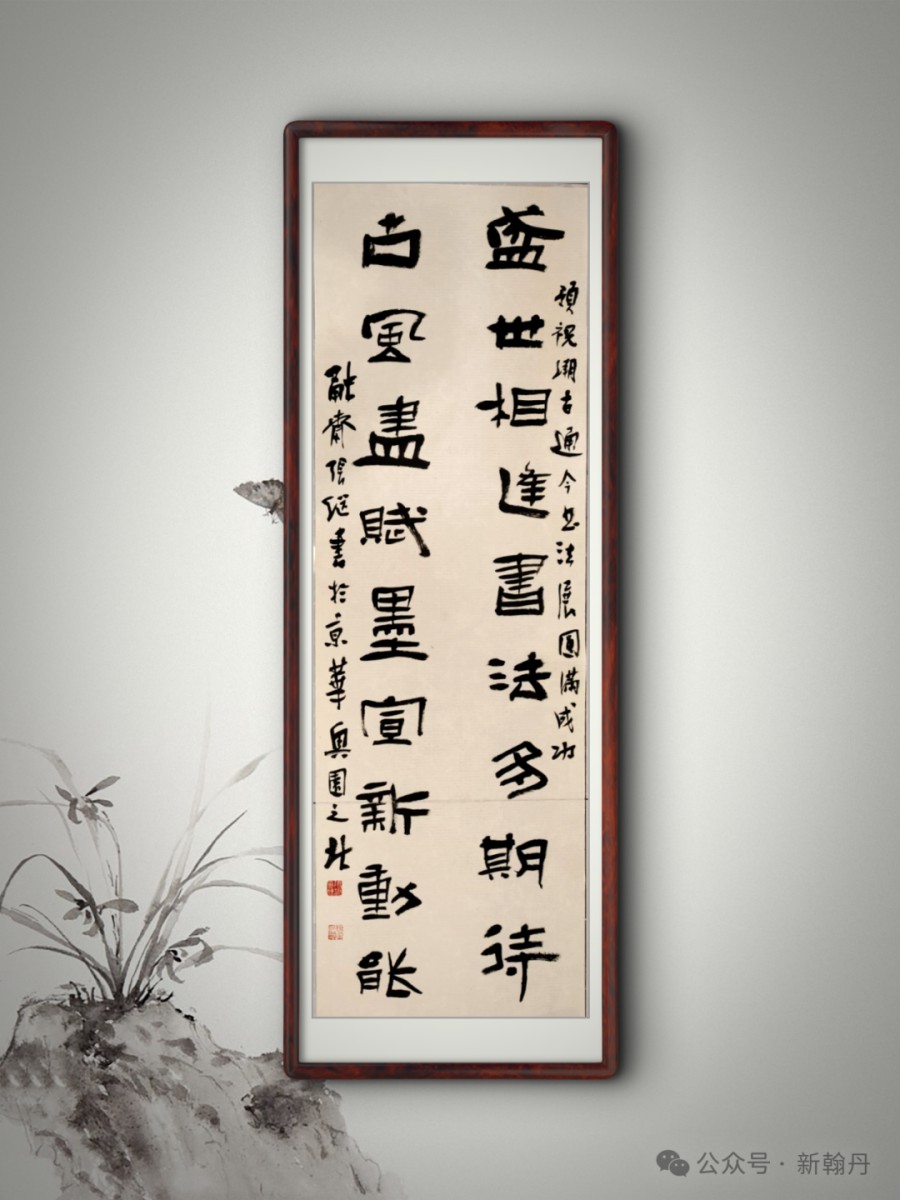 預祝溯古通今书法展圓滿成功
盛世相逢書法多期待
古風盡賦墨宣新動能
融齋張继書於京華奥園之北
公众号 · 新翰丹